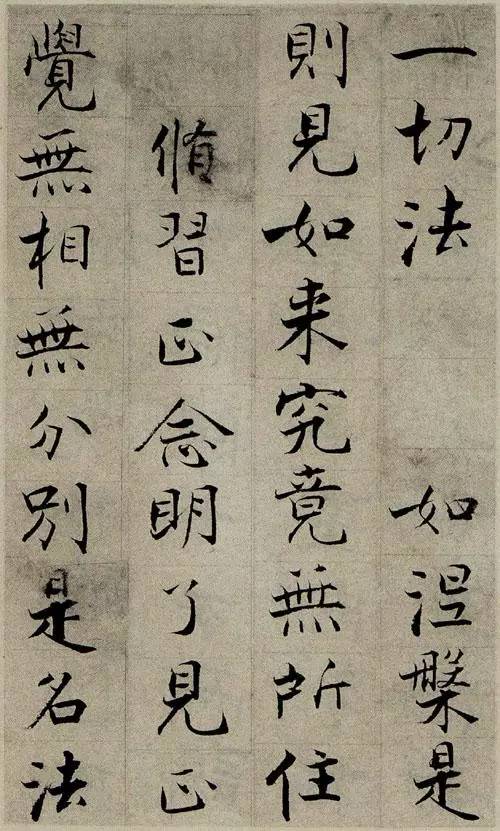 一切法 如涅槃是
則見如来究竟無所住
脩習正念明了見正
覺無相無分別是名法